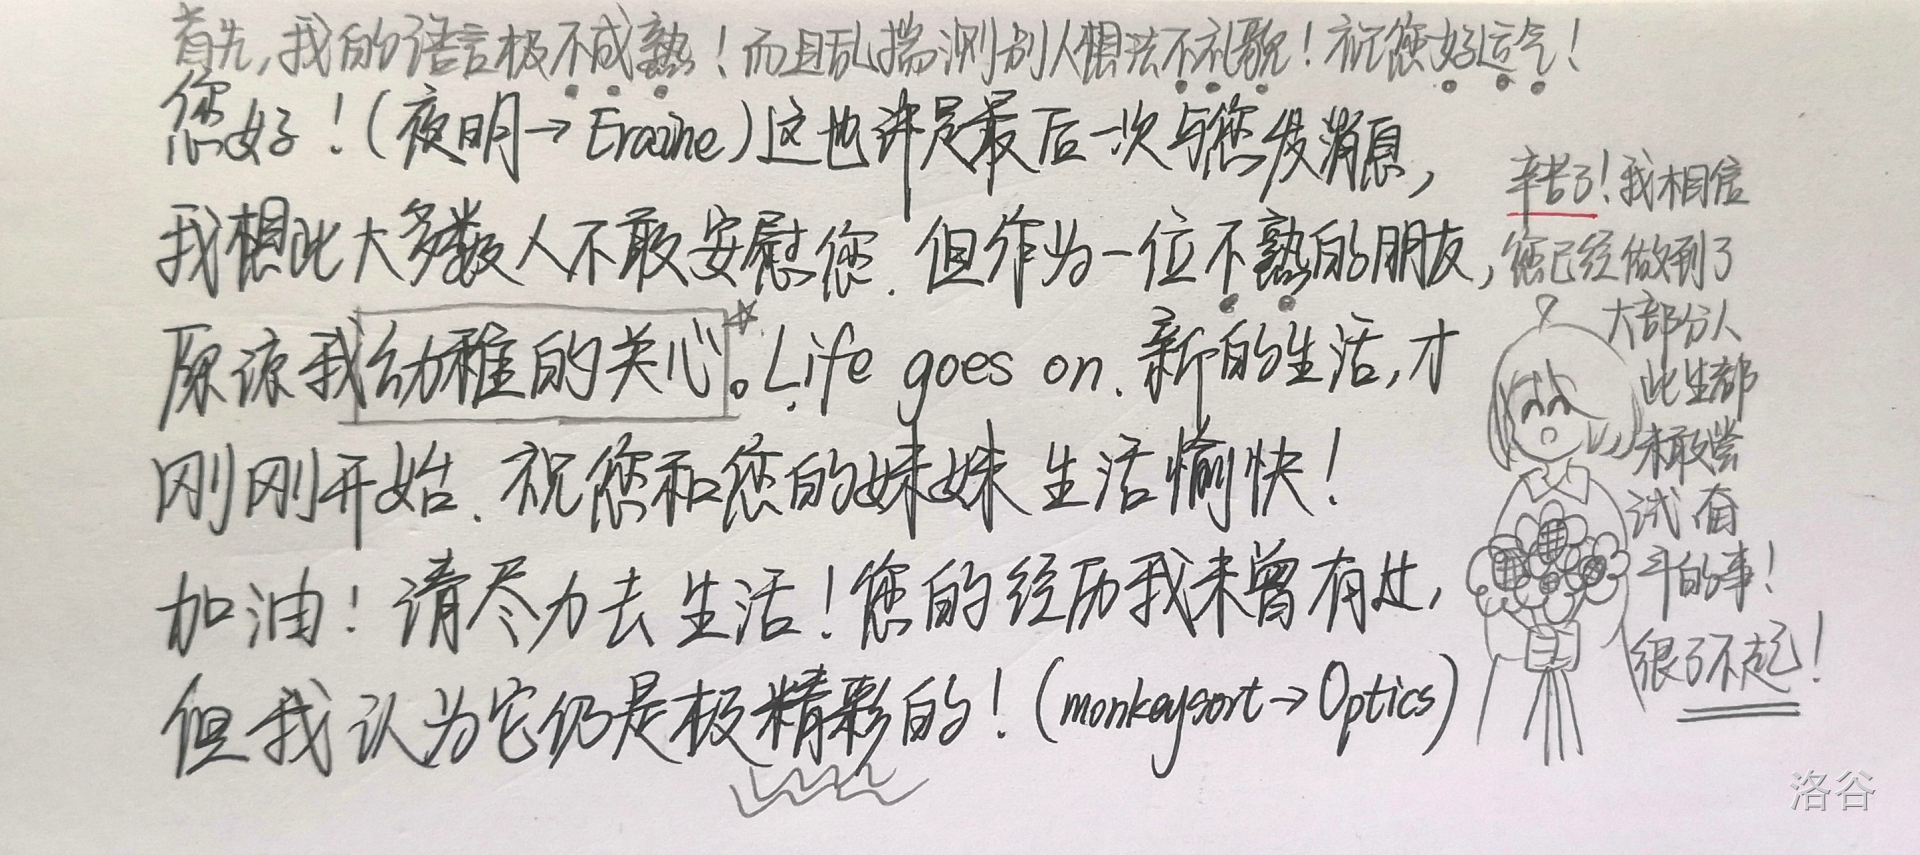 首先,我的语言极不成熟！而且乱揣测别人想法不礼貌！祝您好运气！
您好！(夜明→Erazine)这也许是最后一次与您发消息,
我想此大多数人不敢安慰您.但作为一位不熟的朋友,
原谅我幼稚的关心。Life goes on.新的生活,才
刚刚开始.祝您和您的妹妹生活愉快！
加油！请尽力去生活！您的经历我未曾有过,
但我认为它仍是极精彩的！(monkeysort→Optics)
辛苦了！我相信
您已经做到了
大部分人
此生都
未敢尝
试奋
斗的事！
很了不起！
洛谷